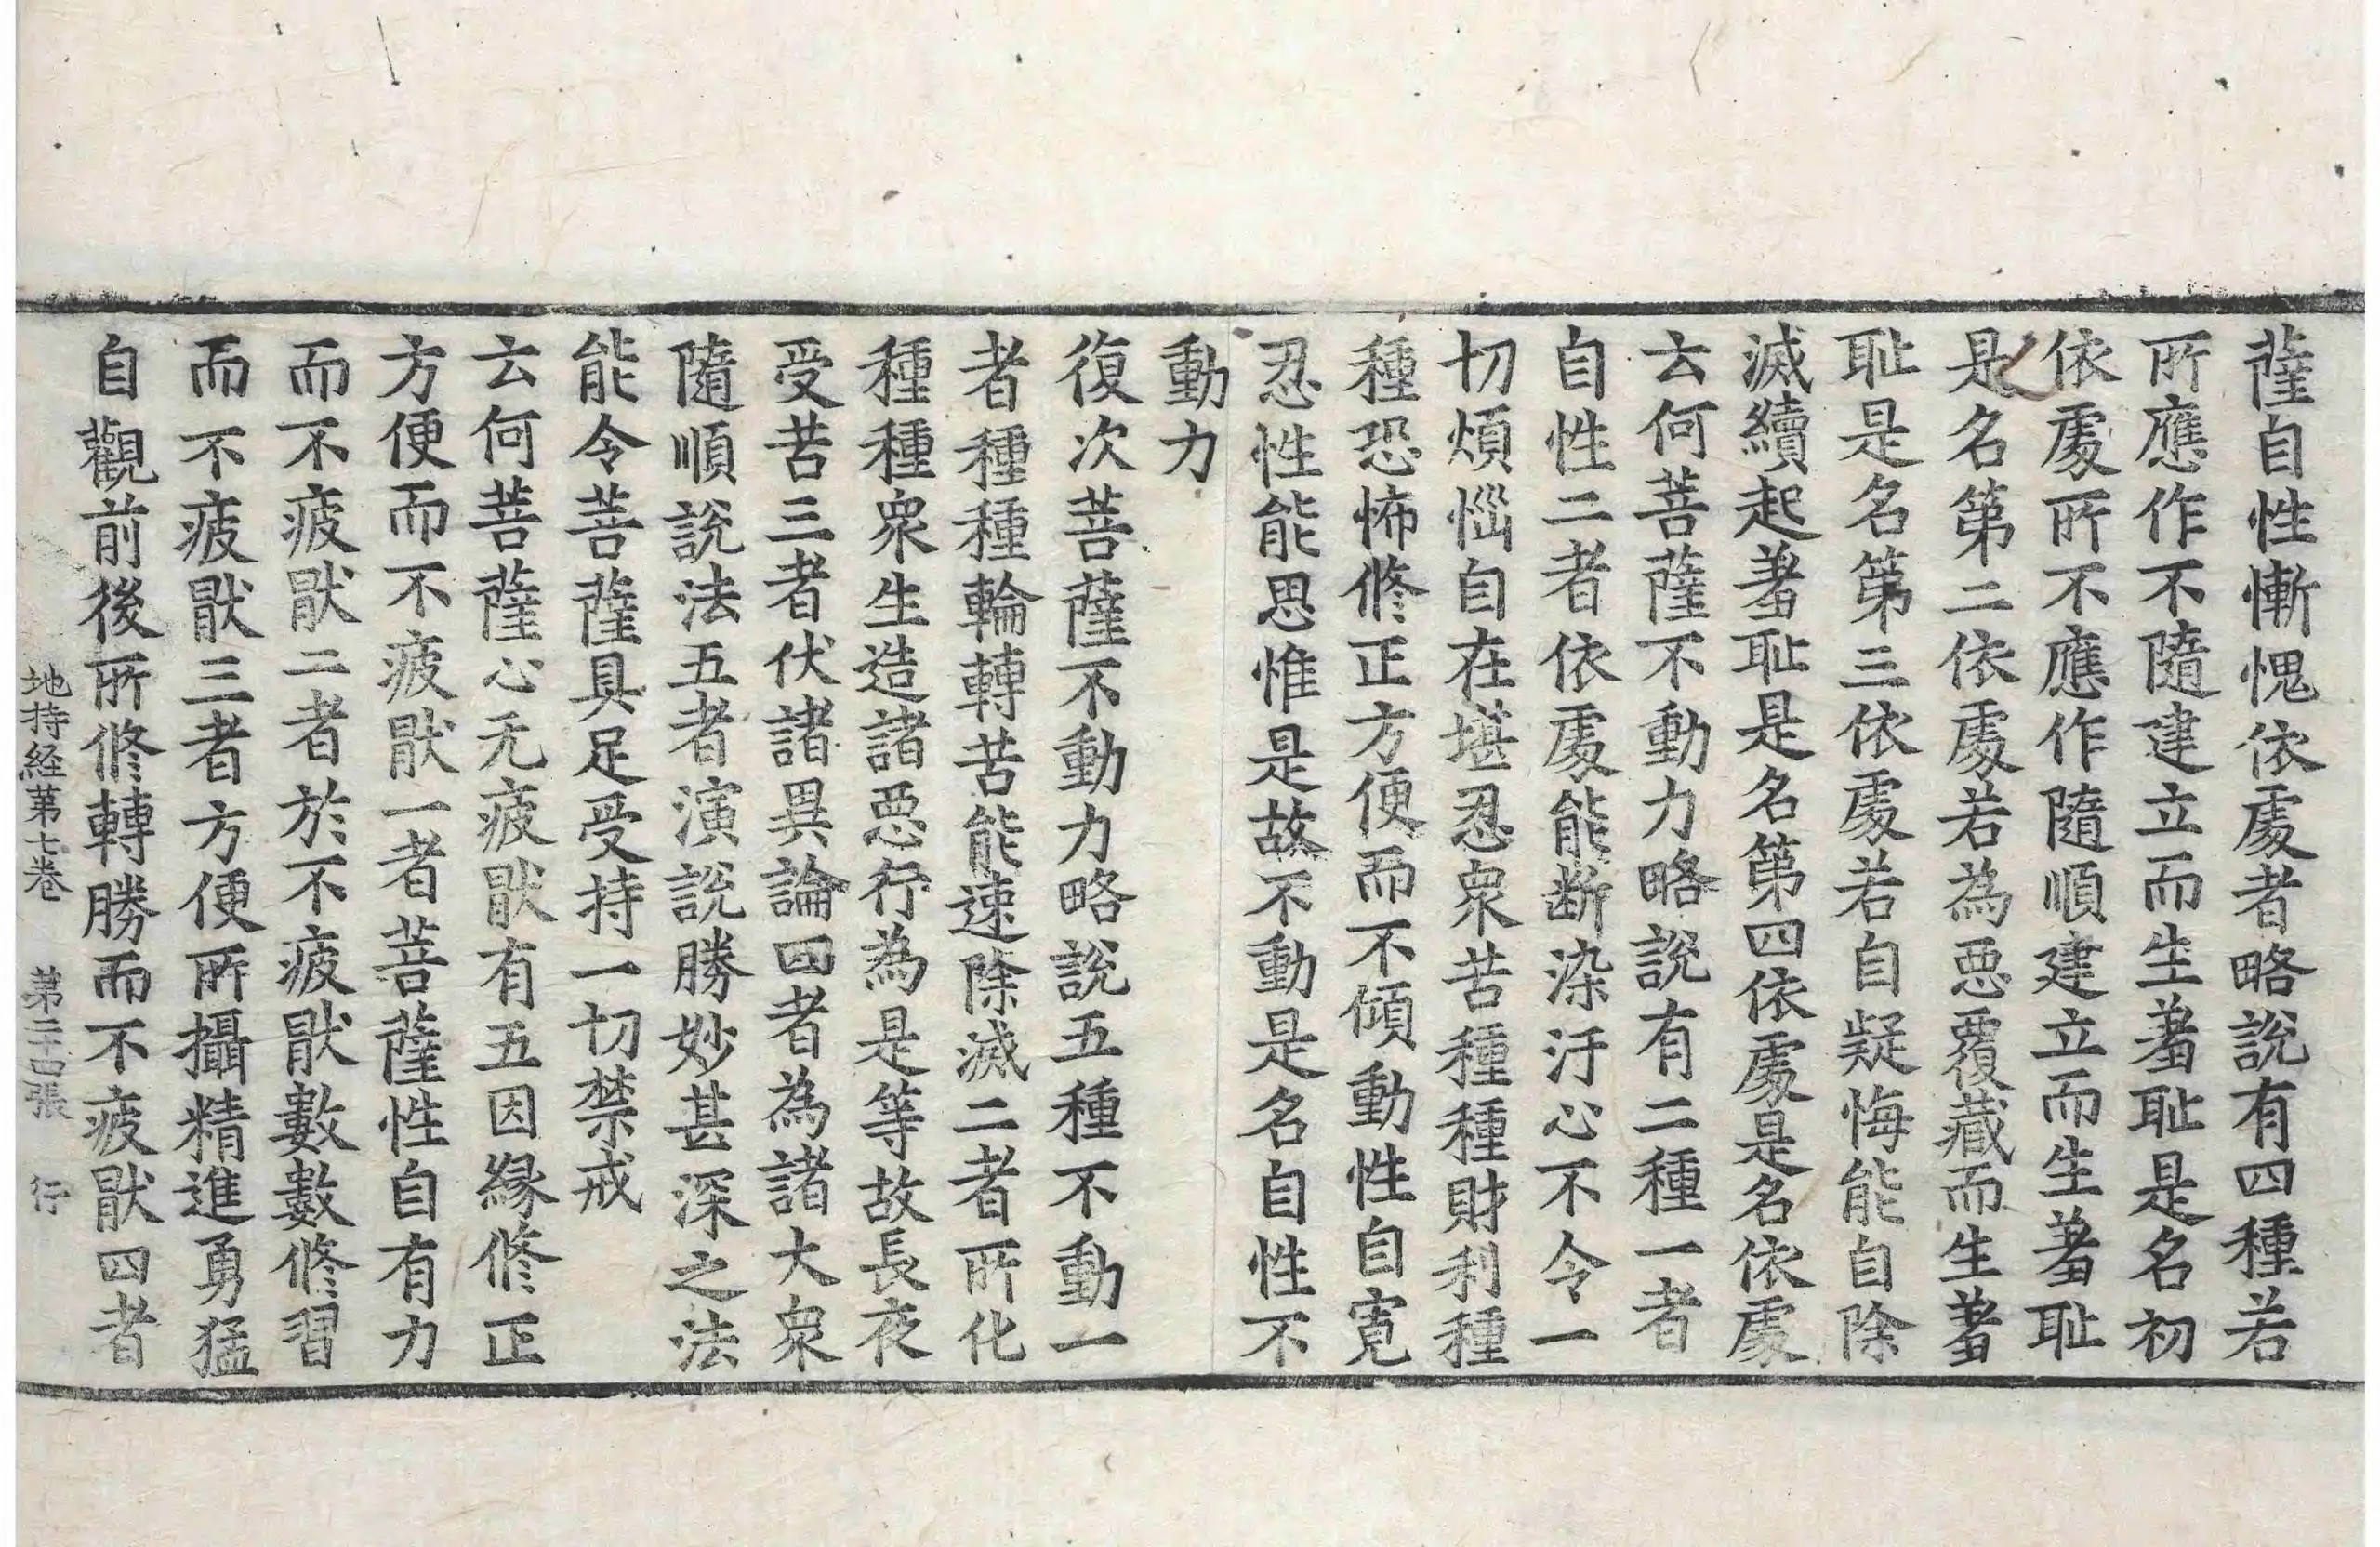 薩自性慚愧依䖏者略說有四種若
所應作不隨建立而生羞耻是名初
依䖏所不應作隨順建立而生羞耻
是名第二依䖏若為惡覆藏而生羞
耻是名第三依䖏若自疑悔能自除
滅續起羞耻是名第四依䖏是名依䖏
云何菩薩不動力略說有二種一者
自性二者依䖏能断染汙心不令一
切煩惱自在堪忍衆苦種種財利種
種恐怖修正方便而不傾動性自寬
忍性能思惟是故不動是名自性不
動力
復次菩薩不動力略說五種不動一
者種種輪轉苦能速除滅二者所化
種種衆生造諸惡行為是等故長夜
受苦三者伏諸異論四者為諸大衆
隨順說法五者演說勝妙甚深之法
能令菩薩具足受持一切禁戒
云何菩薩心无疲猒有五因緣修正
方便而不疲猒一者菩薩性自有力
而不疲猒二者於不疲猒數數修習
而不疲猒三者方便所攝精進勇猛
自觀前後所修轉勝而不疲猒四者
地持経第七卷 第二十四張 行